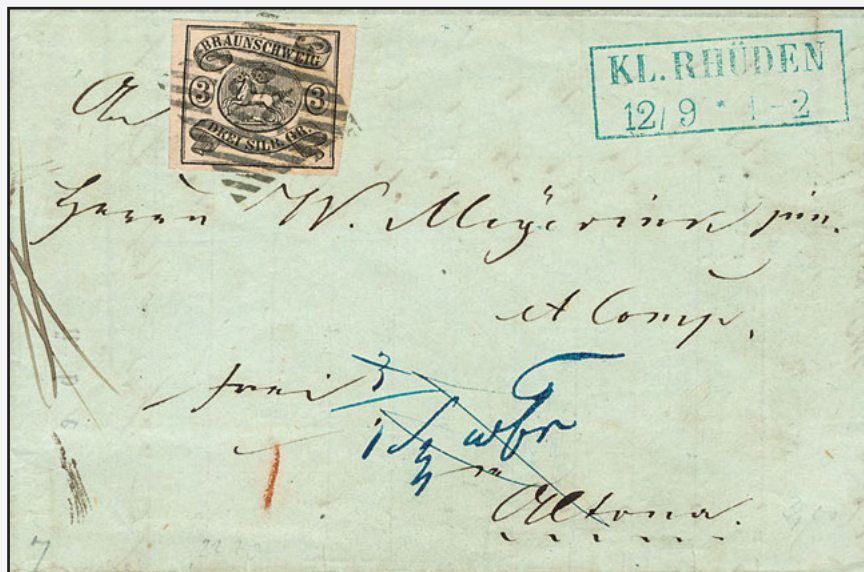 BRAUNSCHWEIG
3 3
DREI SILB. GR.
KL. RHÜDEN
12/9 * 1-2
An
Herrn W. Meyerinn jun.
et Comp.
frei 3
wfr
Altona.
7